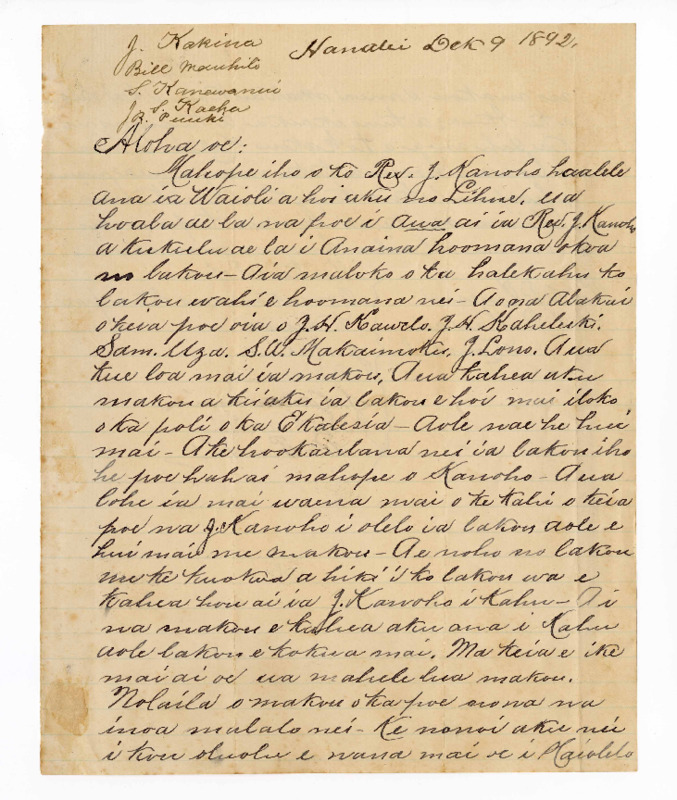 J. Kakina
Bill Mauhili
S. Kanewanui
J. S. Kaeha
J. R. Puuki
Hanalei Dek 9 1892.
Aloha oe:
Mahope iho o ko Rev. J. Kanoho haalele
ana ia Waioli a hoi aku no Lihue, ua
hoala ae la na poe i aua ai ia Rev. J. Kanoho
a kukulu ae la i Anaina hoomana okoa
no lakou - Aia maloko o ka halekahu ko
lakou wahi e hoomana nei - A o na Alakai
o keia poe oia o J. H. Kawelo. J. H. Kaheleski.
Sam. Uza. S. W. Makaimoku, J. Lono. A ua
kue loa mai ia makou, A ua kahea aku
makou a kii aku ia lakou e hoi mai iloko
o ka poli o ka Ekalesia - Aole nae he hui
mai - A ke hookaulana nei ia lakou iho
he poe hahai mahope o Kanoho - A ua
lohe ia mai waena mai o kekahi o keia
poe na J. Kanoho i olelo ia lakou aole e
hui mai me makou - A e noho no lakou
me ke kuokoa a hiki i ko lakou wa e
kahea hou ai ia J. Kanoho i Kahu - A i
na makou e kahea aku ana i Kahu
aole lakou e kokua mai. Ma keia e ike
mai ai oe ua mahele lua makou.
Nolaila o makou o ka poe nona na
inoa malalo nei - Ke nonoi aku nei
i kou oluolu e nana mai oe i Haiolelo